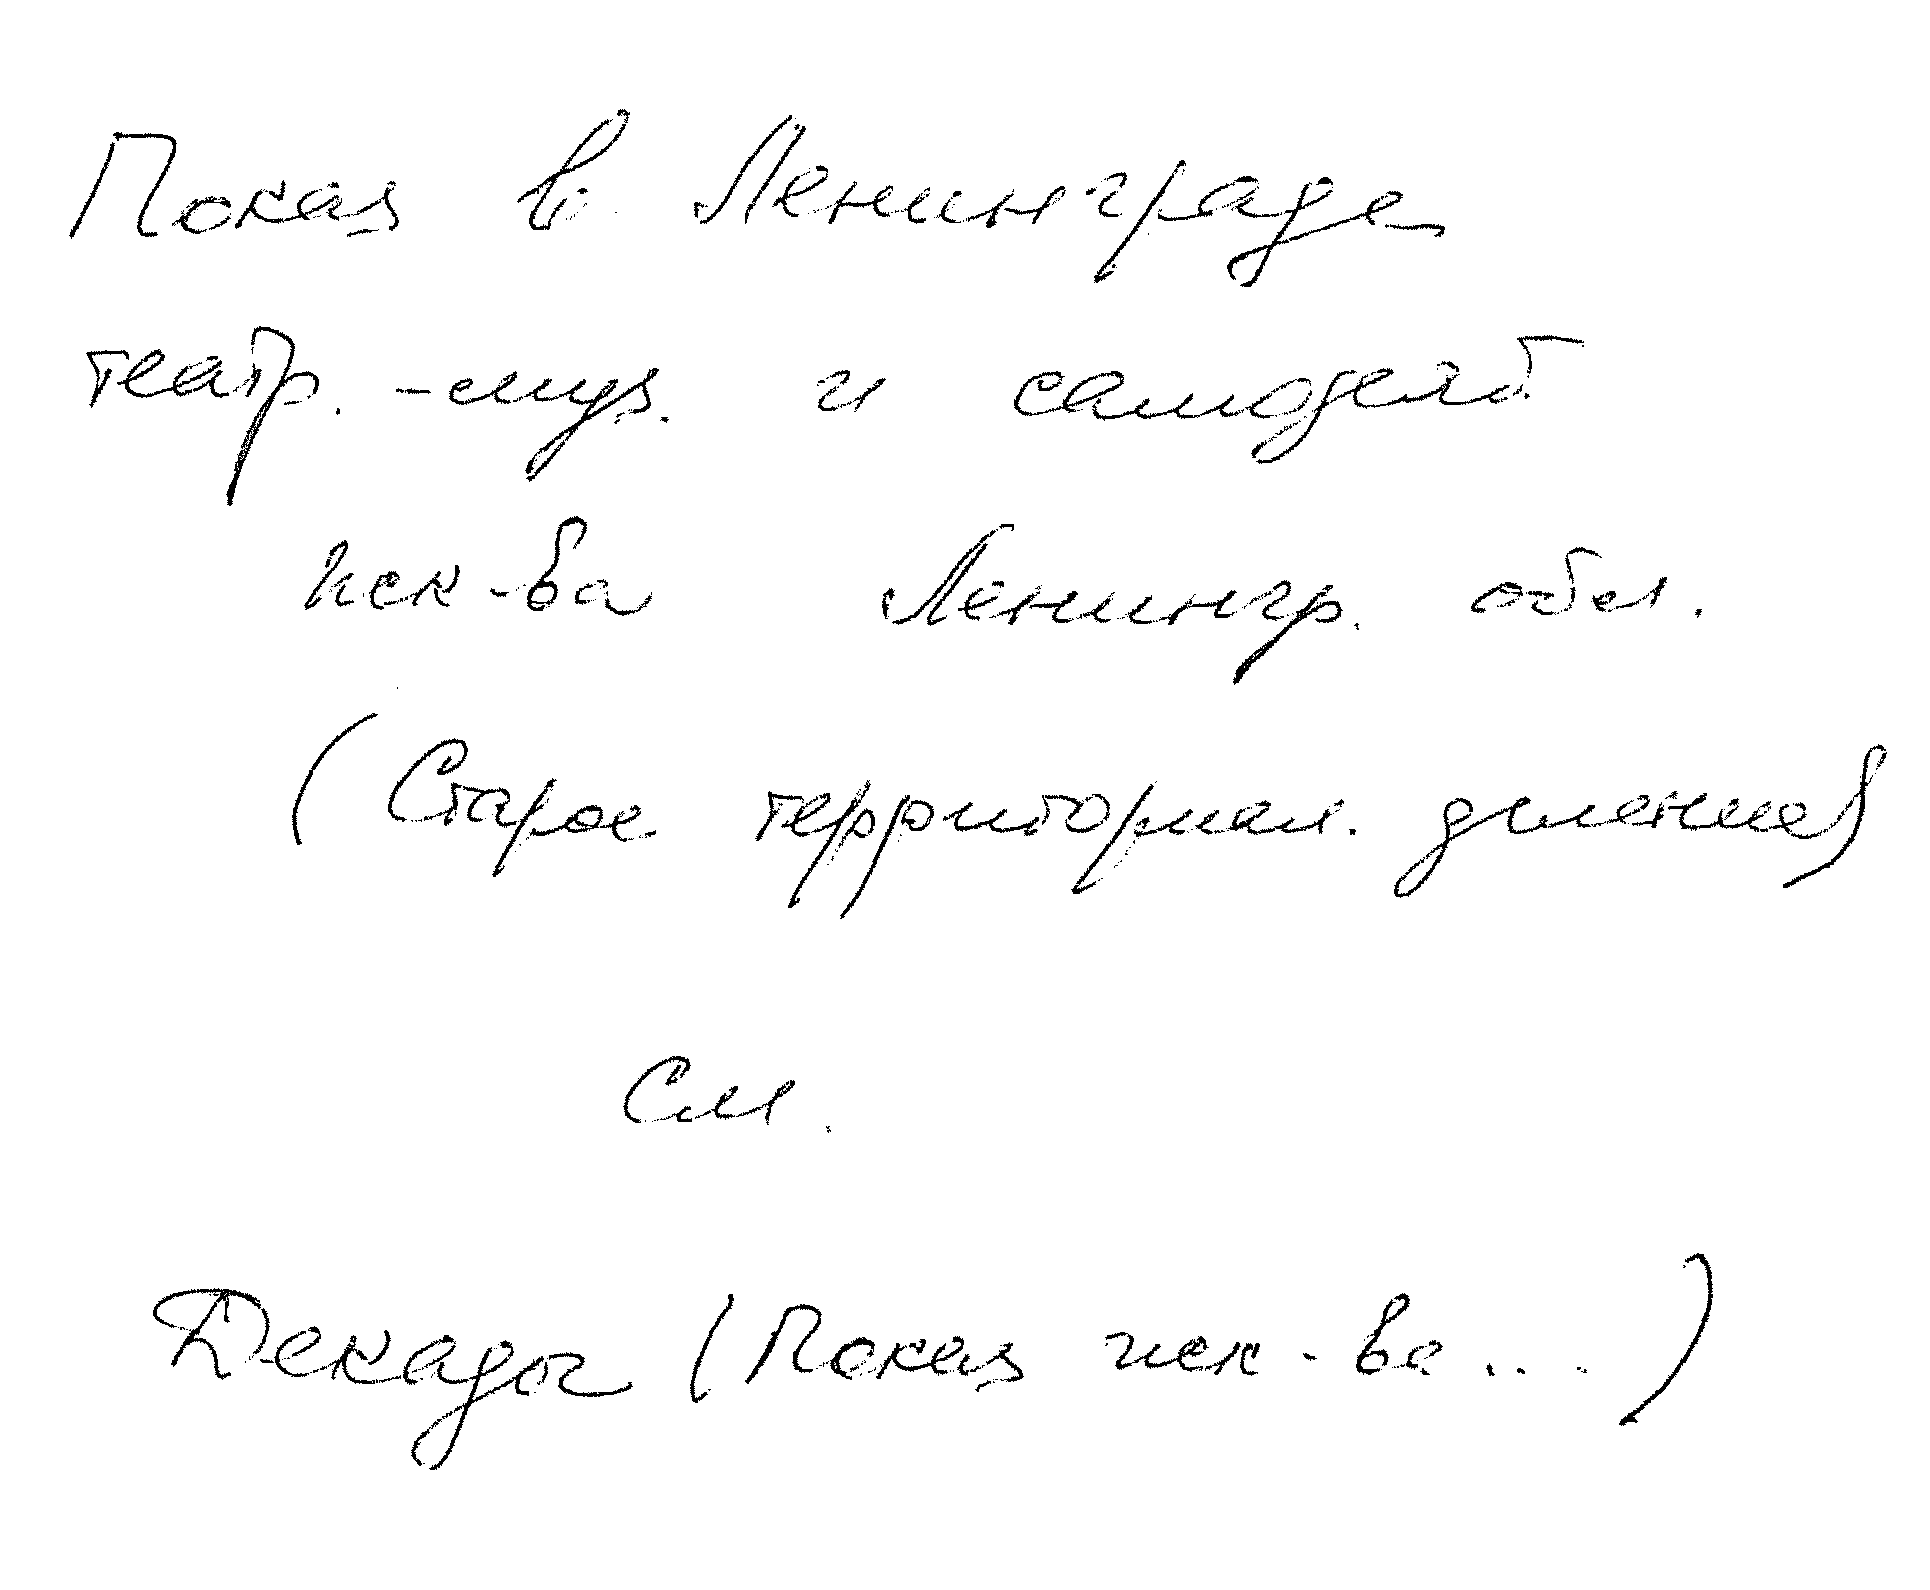 Показ в Ленинграде
театр.-муз. и самодеят.
иск-ва Ленингр. обл.
(Старое территориал. деление)
См.
Декады (Показ иск-ва...)